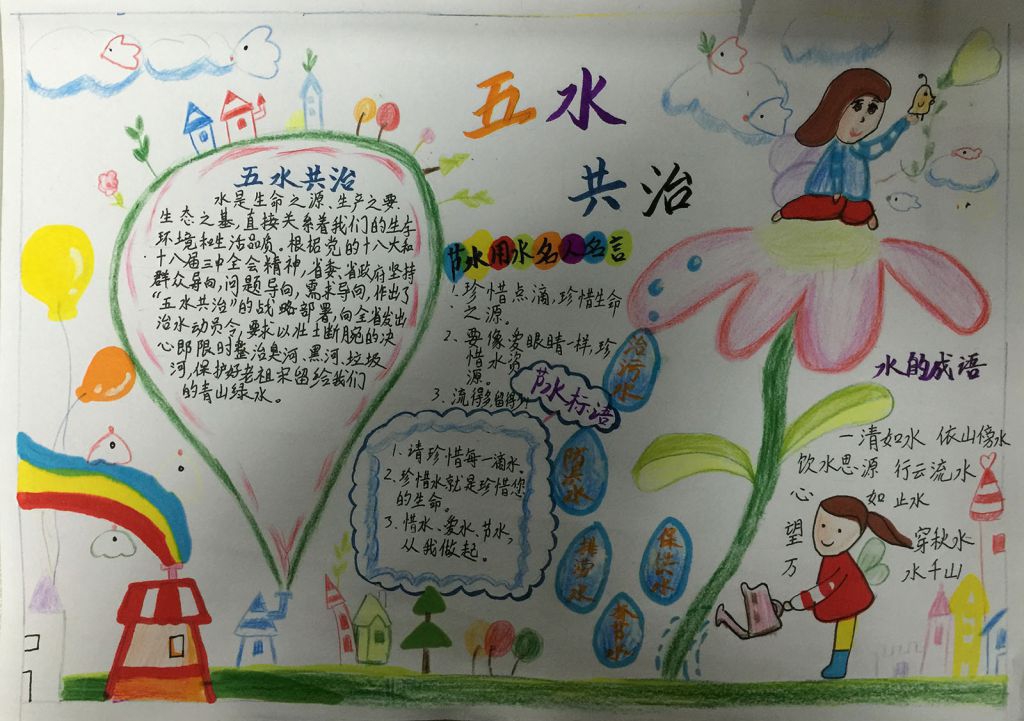 五水
共治
五水共治
水是生命之源、生产之要
生态之基,直接关系着我们的生存
环境和生活品质。根据党的十八大和
十八届三中全会精神,省委、省政府坚持
群众导向,问题导向,需求导向,作出了
“五水共治”的战略部署,向全省发出
治水动员令,要求以壮士断腕的决
心即限时整治臭河、黑河、垃圾
河,保护好老祖宋留给我们
的青山绿水。
节水用水名人名言
1.珍惜点滴,珍惜生命
之源。
2.要像爱眼睛一样,珍
惜水资
源。
3.流得多,留得
节水标语
1.请珍惜每一滴水。
2.珍惜水就是珍惜您
的生命。
3.惜水、爱水、节水,
从我做起。
治污水
防洪水
排涝水
保供水
夲节水
水的成语
一清如水 依山傍水
饮水思源 行云流水
心 如 止水
望 穿秋水
万 水千山